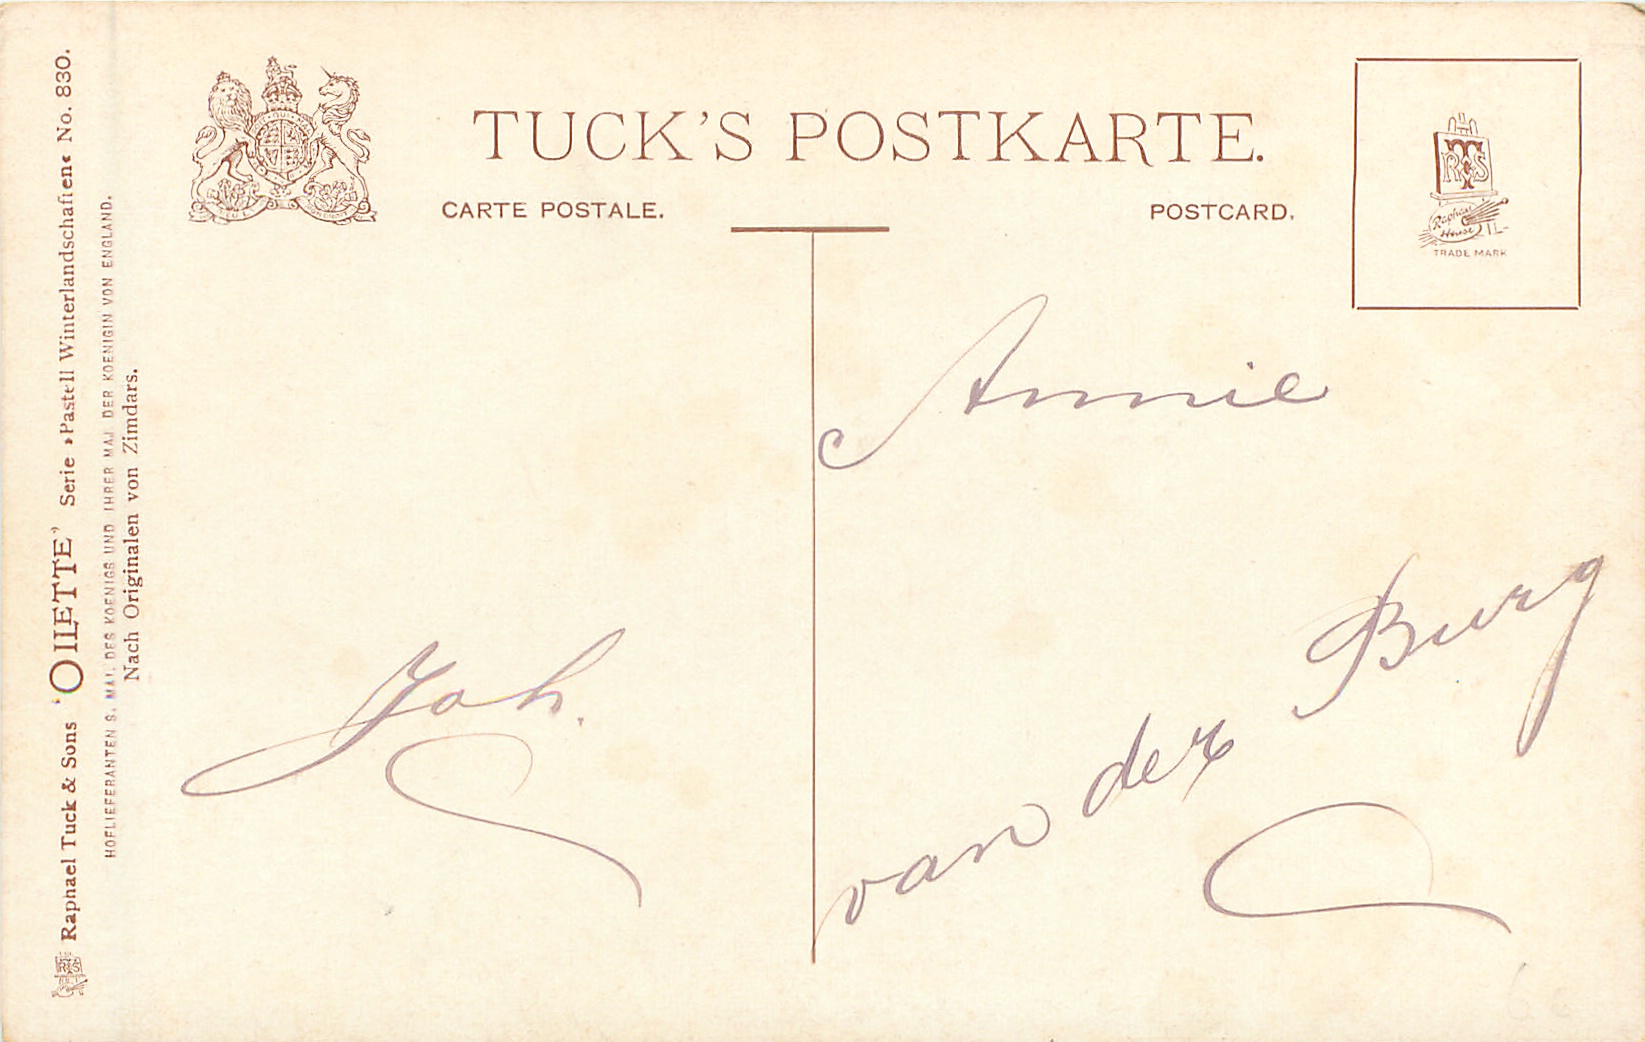 TUCK'S POSTKARTE.
CARTE POSTALE.
POSTCARD.
RTS
Raphael
House
TRADE MARK
Annie
van der Burg
Joh.
Raphael Tuck & Sons "OILETTE" Serie »Pastell Winterlandschaften« No. 830.
HOFLIEFERANTEN S. MAJ. DES KOENIGS UND IHRER MAJ DER KOENIGIN VON ENGLAND.
Nach Originalen von Zimdars.